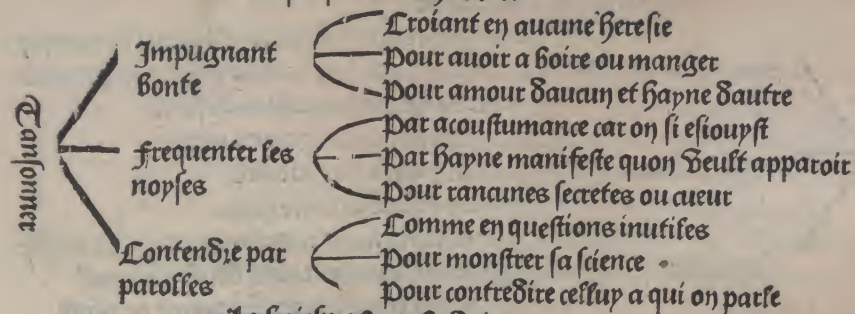 Tansonner
Impugnant
bonte
Croiant en aucune heresie
Pour auoir a boire ou manger
Pour amour daucun et hayne dautre
frequenter les
noyses
Par acoustumance car on si esiouyst
Par hayne manifeste quon veult apparoir
Pour rancunes secretes ou cueur
Contendre par
parolles
Comme en questions inutiles
Pour monstrer sa science
Pour contredire celluy a qui on parle